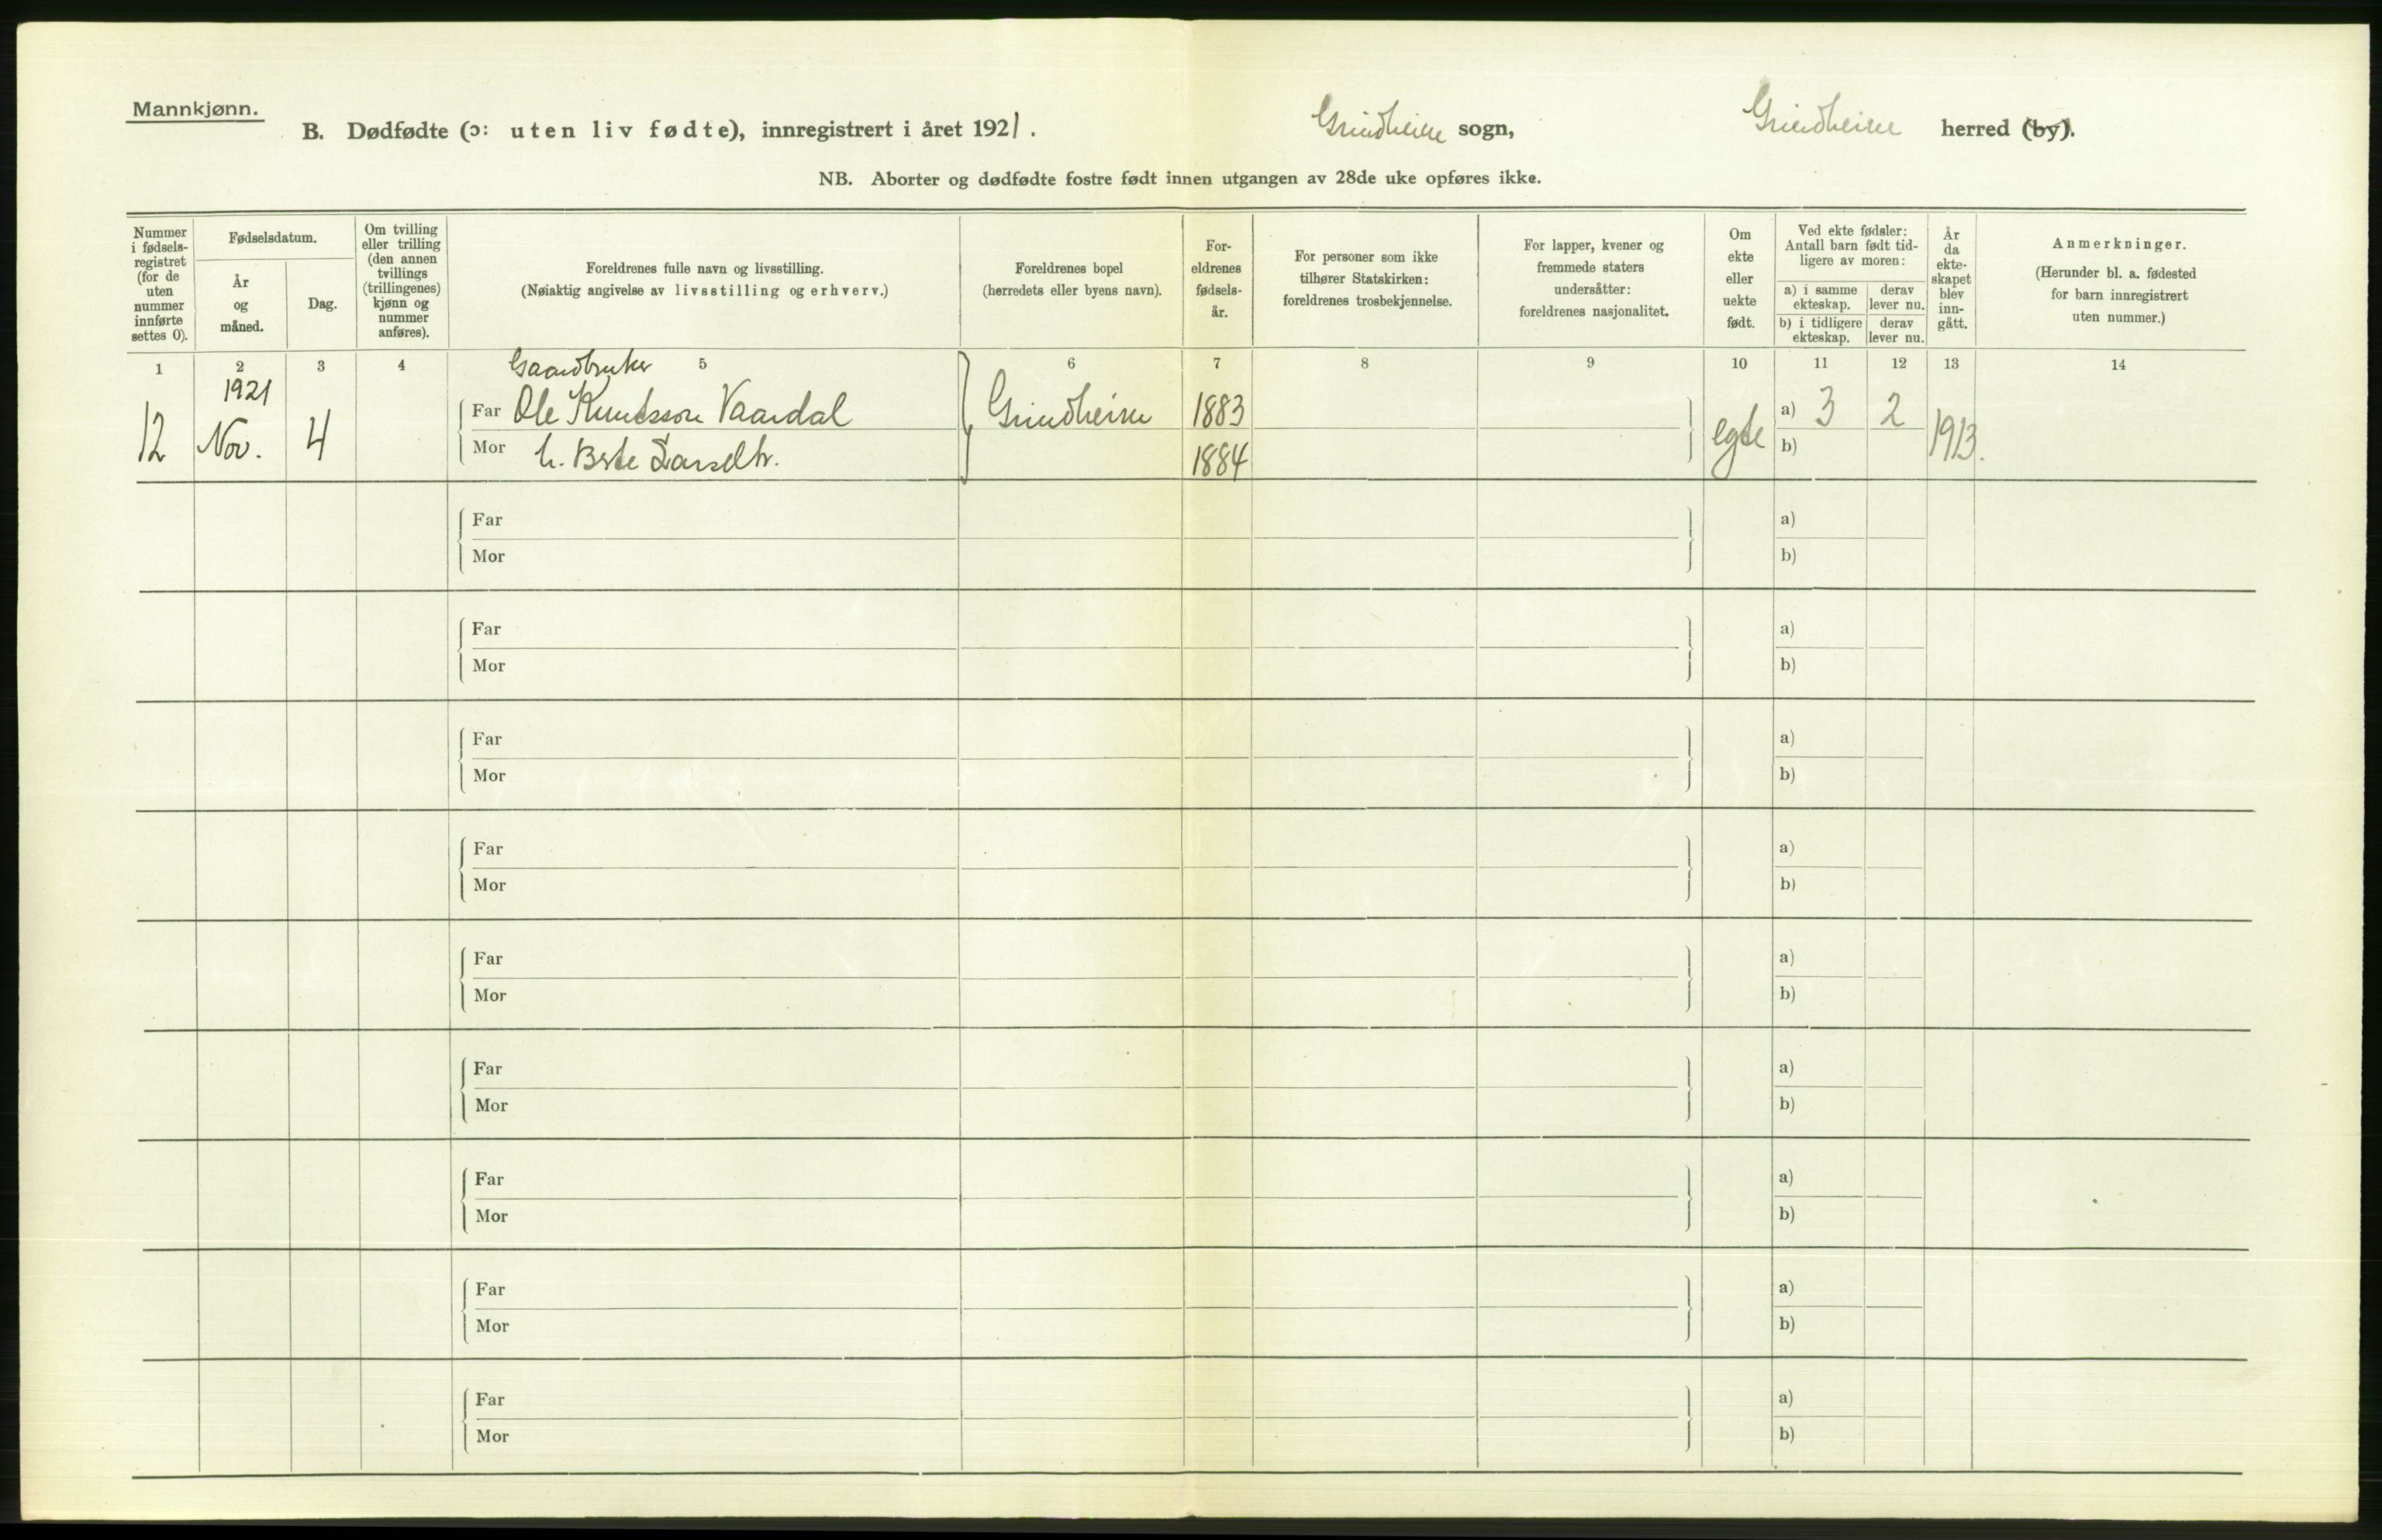 Mannkjønn.
B. Dødfødte (ɔ: uten liv fødte), innregistrert i året 1921. Grindheim sogn, Grindheim herred (by).
NB. Aborter og dødfødte fostre født innen utgangen av 28de uke opføres ikke.
Nummer i fødsels-registret (for de uten nummer innførte settes 0).
Fødselsdatum.
År og måned.
Dag.
Om tvilling eller trilling (den annen tvillings (trillingenes) kjønn og nummer anføres).
Foreldrenes fulle navn og livsstilling.
(Nøiaktig angivelse av livsstilling og erhverv.)
Foreldrenes bopel
(herredets eller byens navn).
For-eldrenes fødsels-år.
For personer som ikke tilhører Statskirken: foreldrenes trosbekjennelse.
For lapper, kvener og fremmede staters undersåtter: foreldrenes nasjonalitet.
Om ekte eller uekte født.
Ved ekte fødsler: Antall barn født tid-ligere av moren:
a) i samme ekteskap. derav lever nu.
b) i tidligere ekteskap. derav lever nu.
År da ekte-skapet blev inn-gått.
Anmerkninger.
(Herunder bl. a. fødested for barn innregistrert uten nummer.)
1 2 3 4 5 6 7 8 9 10 11 12 13 14
Gaardbruker
12 1921 Nov. 4 Far Ole Knudsson Vaardal Grindheim 1883 egte a) 3 2 1913.
Mor h. Berte Larsdtr. 1884 b)
Far a)
Mor b)
Far a)
Mor b)
Far a)
Mor b)
Far a)
Mor b)
Far a)
Mor b)
Far a)
Mor b)
Far a)
Mor b)
Far a)
Mor b)
Far a)
Mor b)